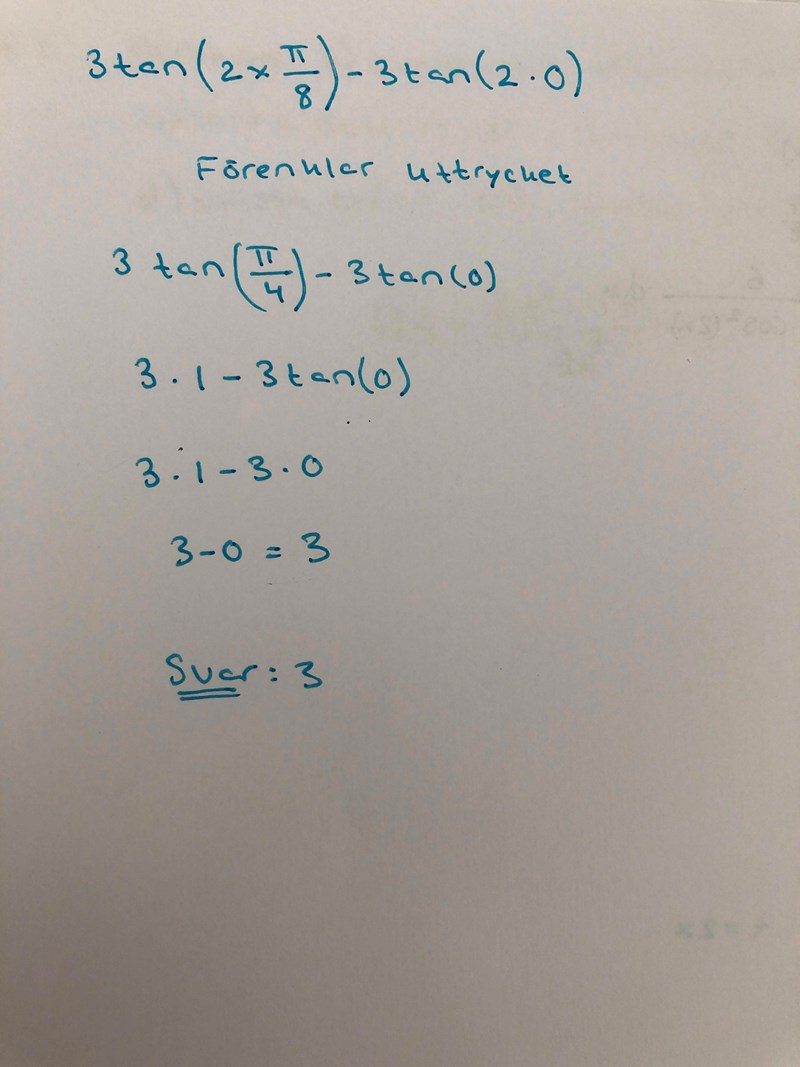 3 tan(2 × π/8) - 3 tan(2 · 0)
Förenklar uttrycket
3 tan(π/4) - 3 tan(0)
3 · 1 - 3 tan(0)
3 · 1 - 3 · 0
3 - 0 = 3
Svar: 3